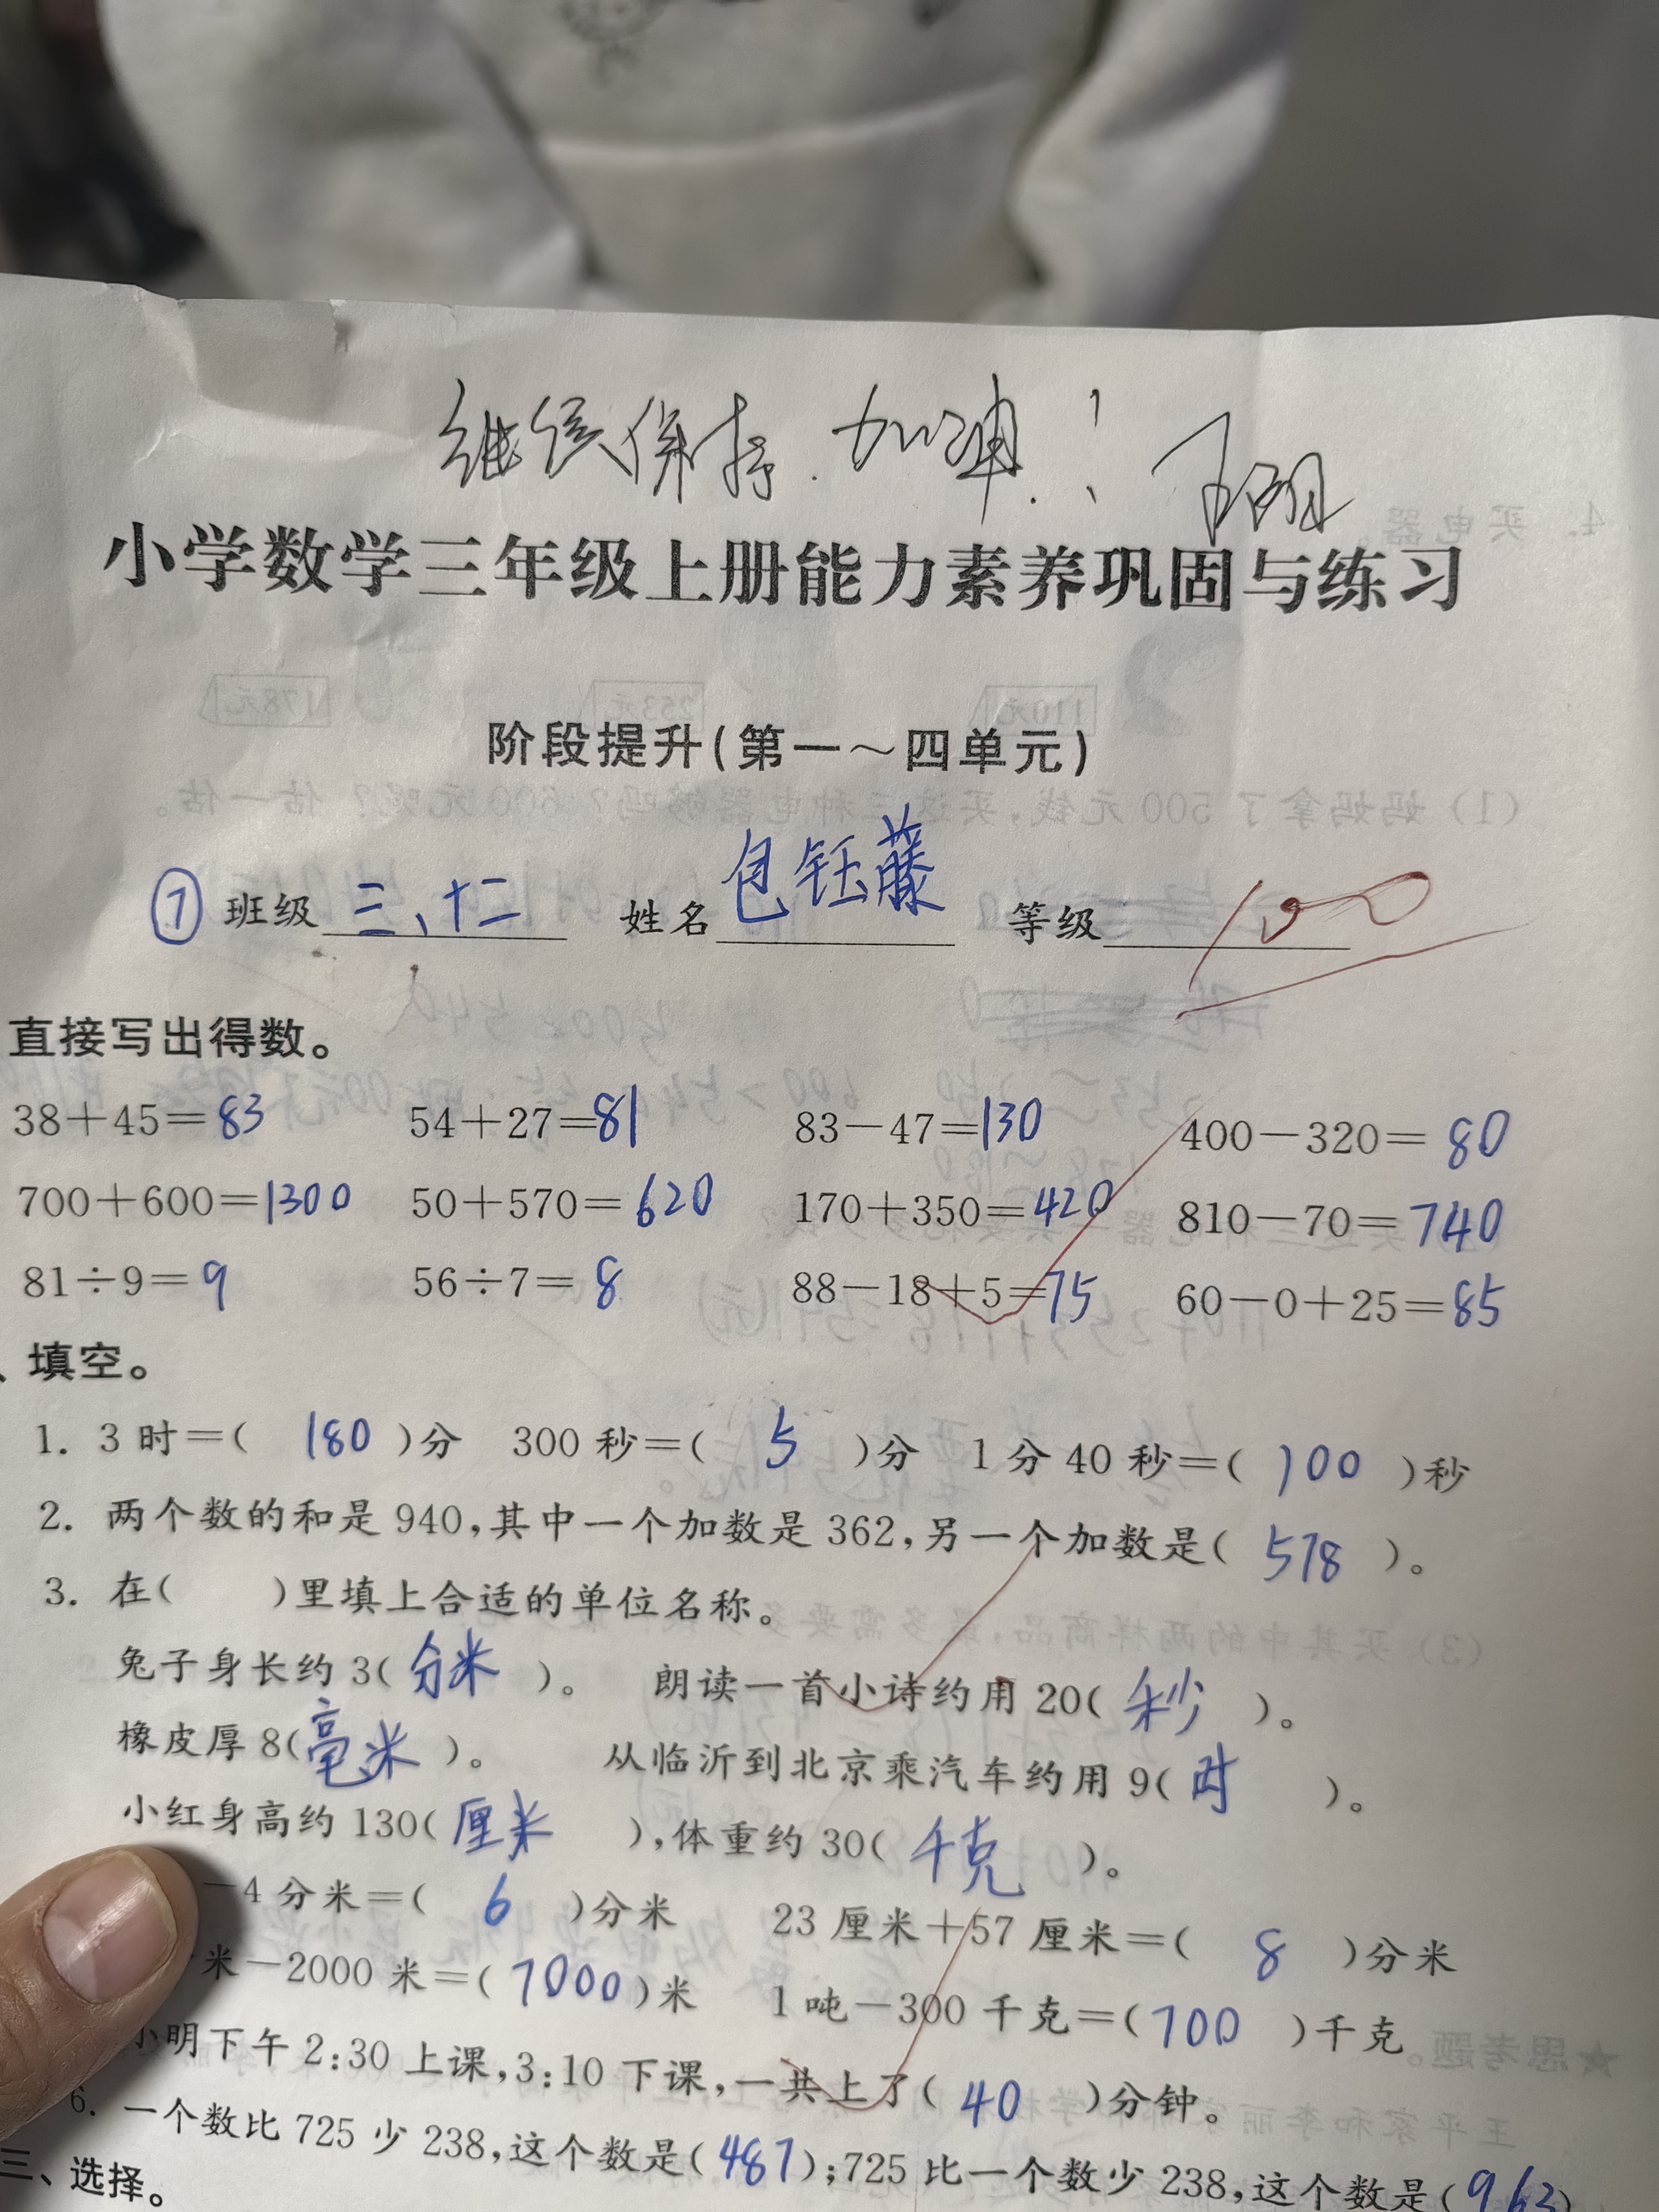 继续保持.加油.!
小学数学三年级上册能力素养巩固与练习
阶段提升(第一～四单元)
① 班级 三、十二 姓名 包钰藤 等级 100
直接写出得数。
38+45=83 54+27=81 83-47=130 400-320=80
700+600=1300 50+570=620 170+350=420 810-70=740
81÷9=9 56÷7=8 88-18+5=75 60-0+25=85
、填空。
1. 3时=( 180 )分 300秒=( 5 )分 1分40秒=( 100 )秒
2. 两个数的和是940,其中一个加数是362,另一个加数是( 578 )。
3. 在( )里填上合适的单位名称。
兔子身长约3( 分米 )。 朗读一首小诗约用20( 秒 )。
橡皮厚8( 毫米 )。 从临沂到北京乘汽车约用9( 时 )。
小红身高约130( 厘米 ),体重约30( 千克 )。
-4分米=( 6 )分米 23厘米+57厘米=( 8 )分米
米-2000米=( 7000 )米 1吨-300千克=( 700 )千克
小明下午2:30上课,3:10下课,一共上了( 40 )分钟。
6. 一个数比725少238,这个数是( 487 );725比一个数少238,这个数是( 963 )
三、选择。
4. 买电器。
110元 253元 178元
(1) 妈妈拿了500元钱,买这三种电器够吗? 600元呢? 估一估。
(3) 买其中的两样商品,最多需要多
★思考题。
王平家和李丽